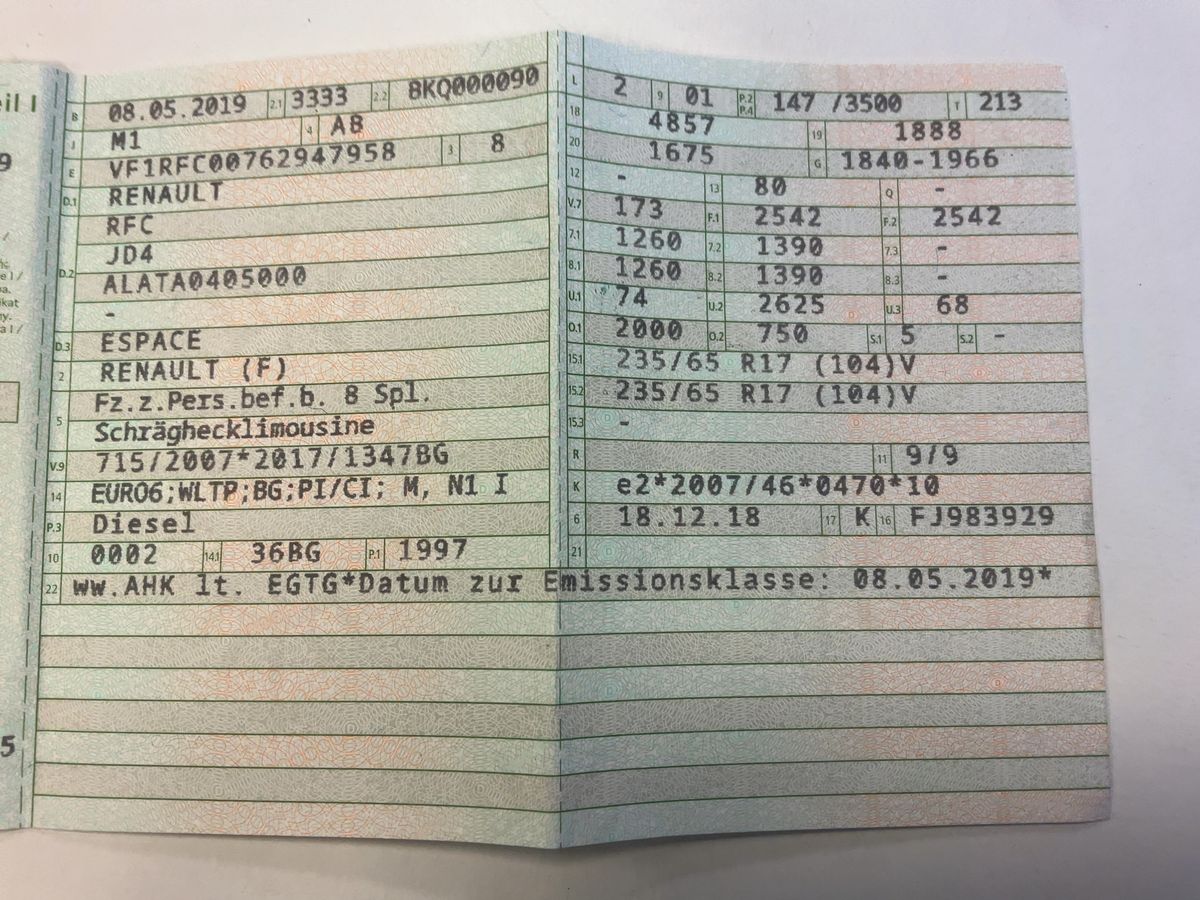 eil I
9
5
B 08.05.2019 2.1 3333 2.2 8KQ000090
J M1 4 AB
E VF1RFC00762947958 3 8
D.1 RENAULT
RFC
D.2 JD4
ALATA0405000
-
D.3 ESPACE
2 RENAULT (F)
Fz.z.Pers.bef.b. 8 Spl.
5 Schräghecklimousine
V.9 715/2007*2017/1347BG
14 EURO6;WLTP;BG;PI/CI; M, N1 I
P.3 Diesel
10 0002 14.1 36BG P.1 1997
L 2 9 01 P.2 P.4 147 /3500 T 213
18 4857 19 1888
20 1675 G 1840-1966
12 - 13 80 Q -
V.7 173 F.1 2542 F.2 2542
7.1 1260 7.2 1390 7.3 -
8.1 1260 8.2 1390 8.3 -
U.1 74 U.2 2625 U.3 68
O.1 2000 O.2 750 S.1 5 S.2 -
15.1 235/65 R17 (104)V
15.2 235/65 R17 (104)V
15.3 -
R 11 9/9
K e2*2007/46*0470*10
6 18.12.18 17 K 16 FJ983929
21
22 ww.AHK lt. EGTG*Datum zur Emissionsklasse: 08.05.2019*